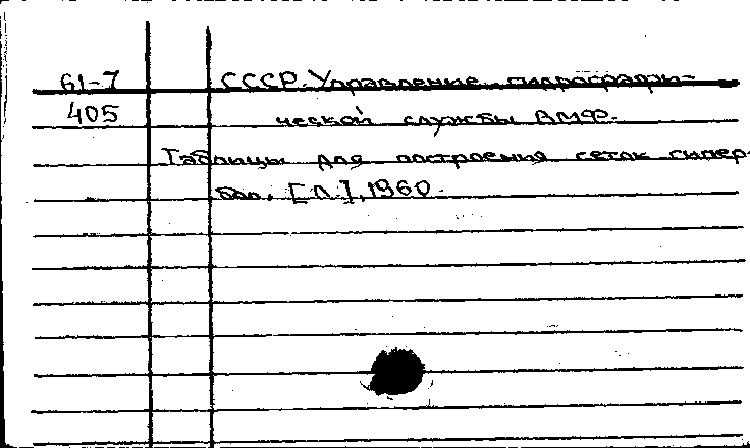 61-7 СССР. Управление гидрографи-
405 ческой службы ВМФ.
Таблицы для построения сеток гипер-
бол. [Л.], 1960.